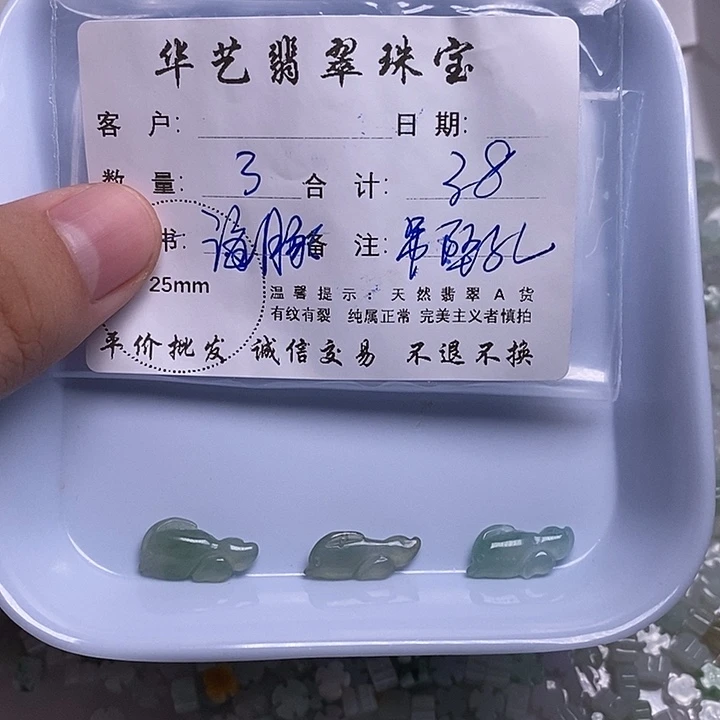 华艺翡翠珠宝
客 户: 日 期:
数 量: 3 合 计: 38
书: 海豚 备 注: 吊坠孔
25mm
温馨提示: 天然翡翠A货
有纹有裂 纯属正常 完美主义者慎拍
平价批发 诚信交易 不退不换